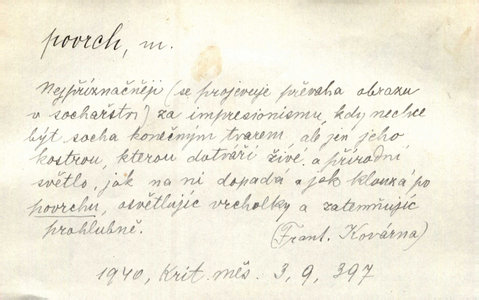 povrch, m.
Nejpříznačněji (se projevuje převaha obrazu
v sochařství) za impresionismu, kdy nechce
být socha konečným tvarem, ale jen jeho
kostrou, kterou dotváří živé a přírodní
světlo, jak na ni dopadá a jak klouzá po
povrchu, osvětlujíc vrcholky a zatemňujíc
prohlubně.
(Frant. Kovárna)
1940, Krit. měs. 3, 9, 397